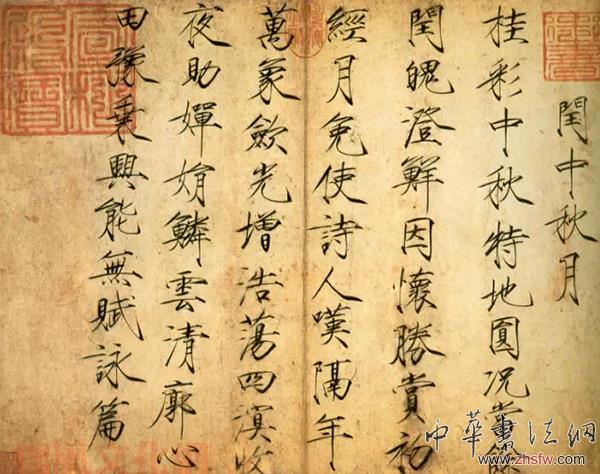 閏中秋月
桂彩中秋特地圓况當
閏魄澄鮮因懷勝賞初
經月免使詩人嘆隔年
萬象斂光增浩蕩四溟
夜助嬋娟鱗雲清廓心
田豫乘興能無賦詠篇
中華書法網
www.zhsfw.com